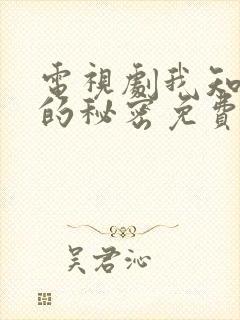 電視劇我知
的秘密免費
吳君沁